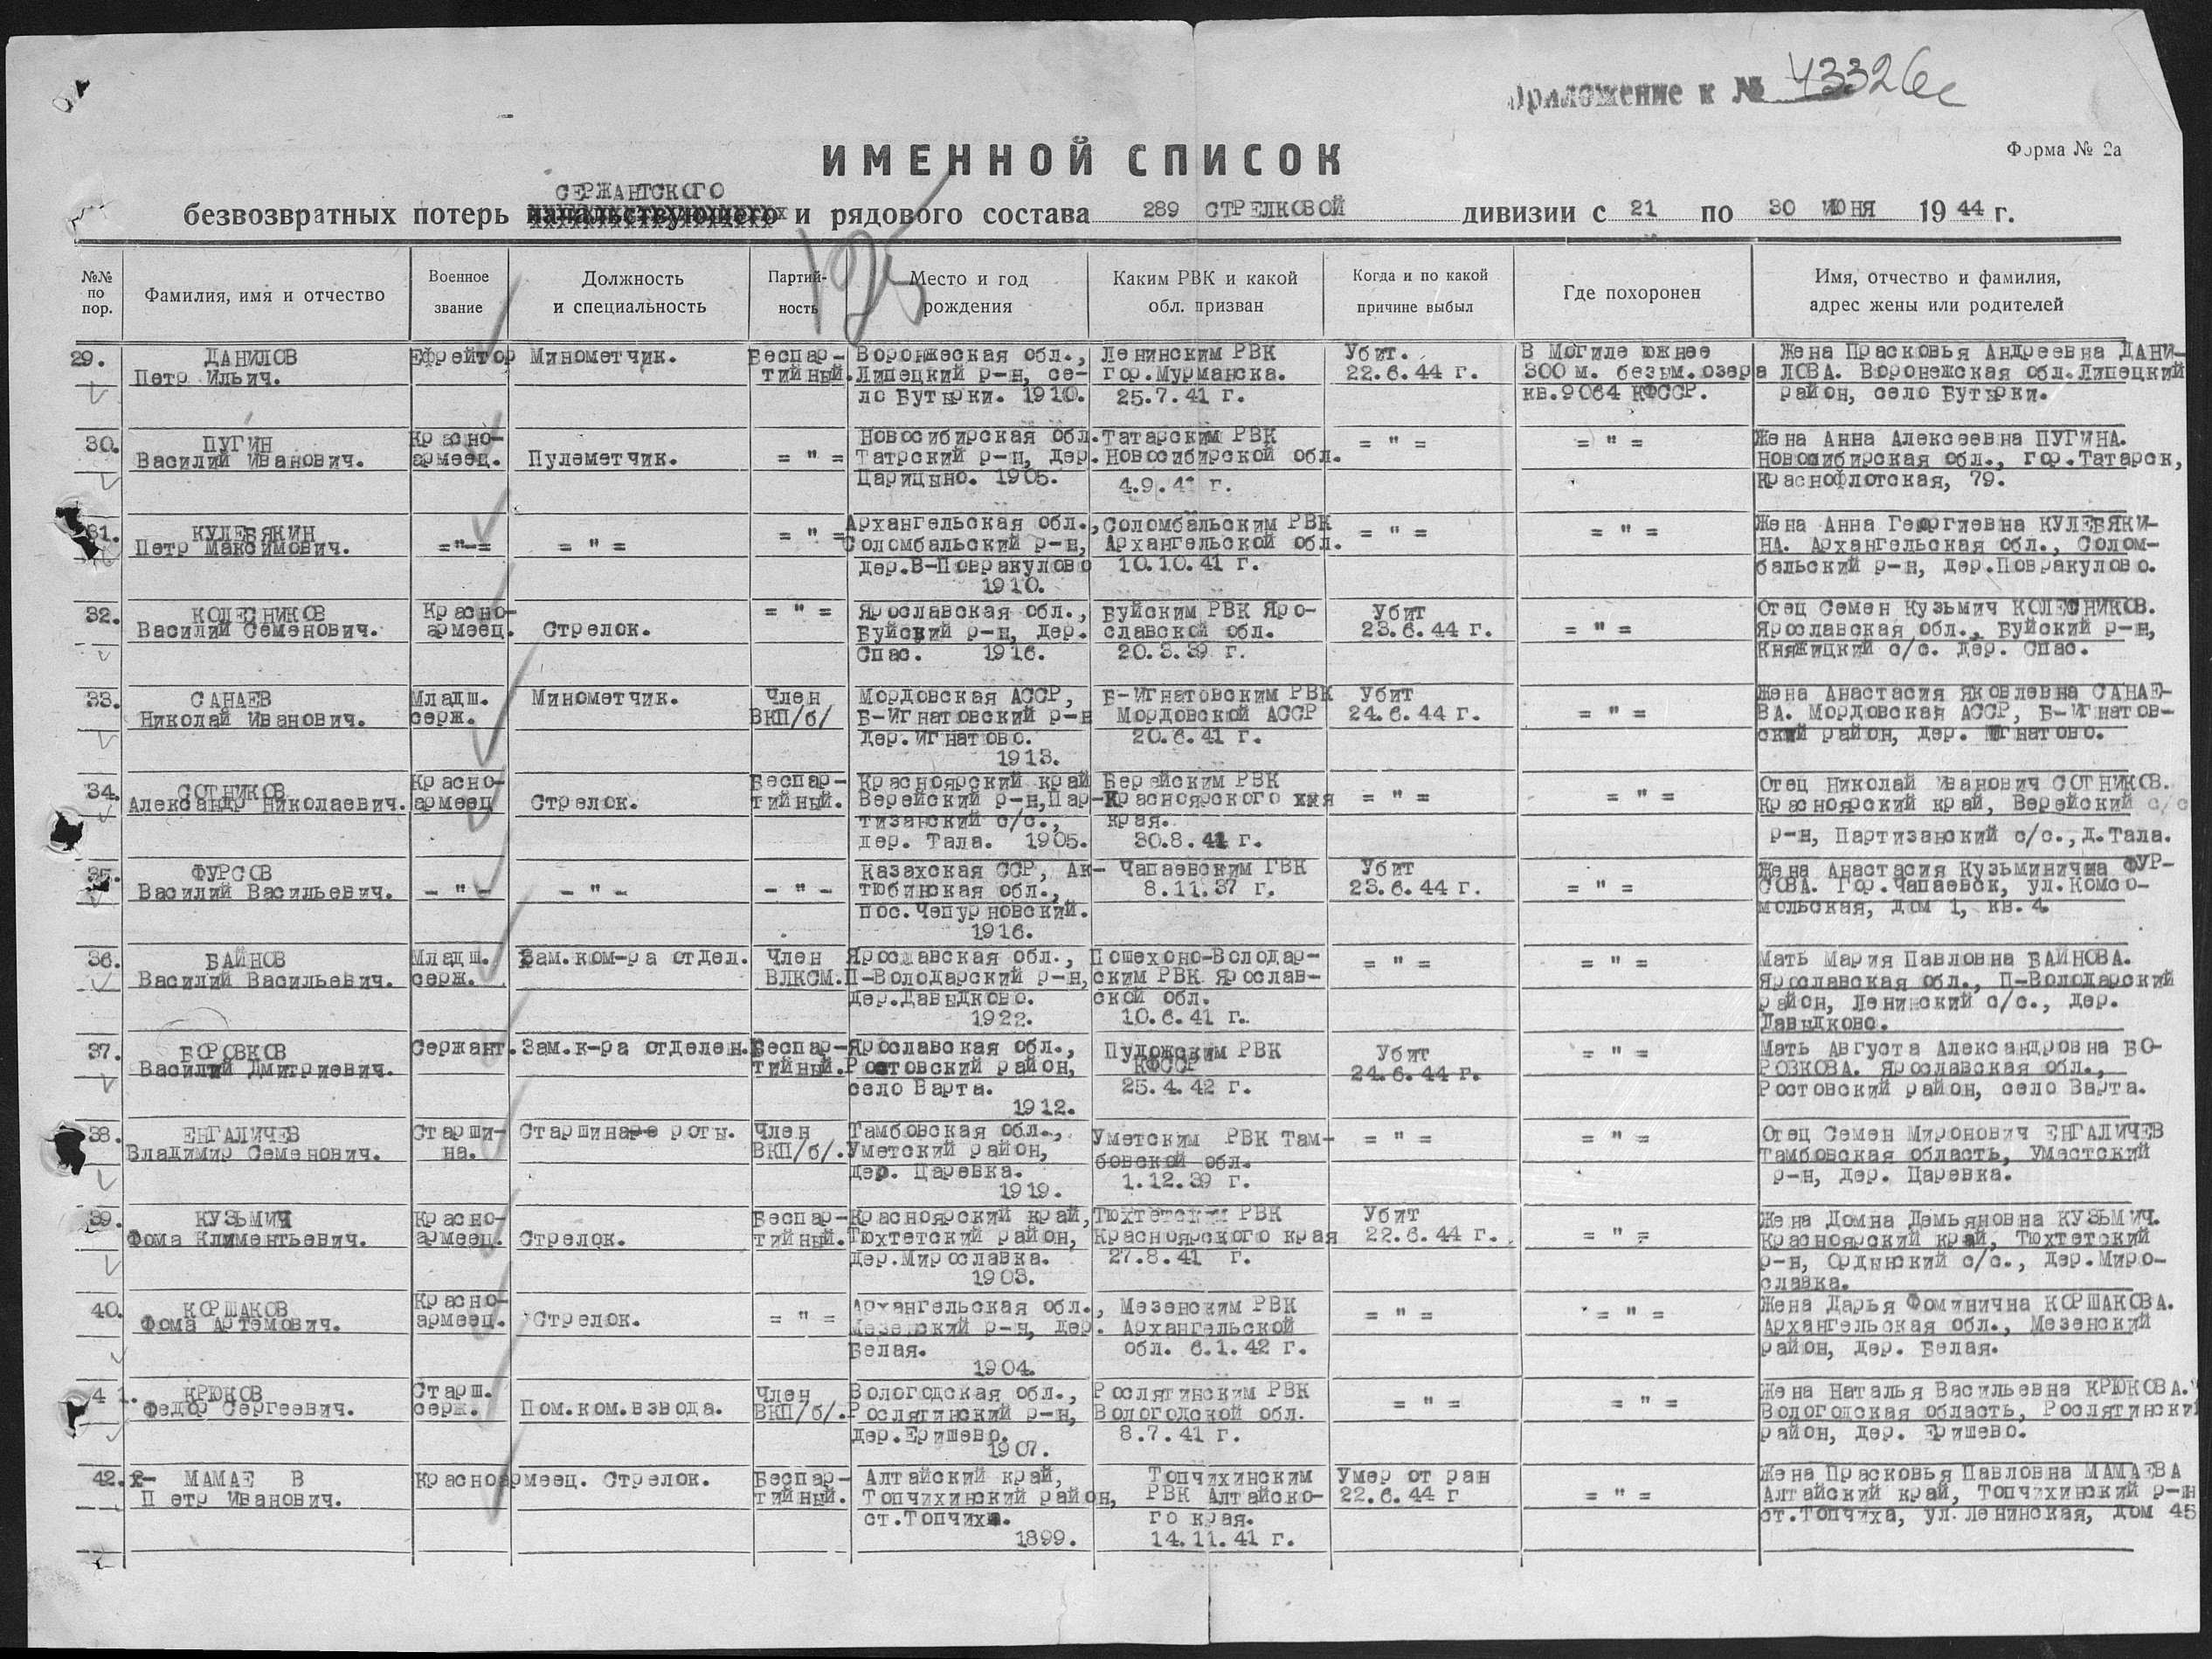 Приложение к № 43326с
ИМЕННОЙ СПИСОК
Форма № 2а
СЕРЖАНТСКОГО
безвозвратных потерь начальствующего и рядового состава 289 СТРЕЛКОВОЙ дивизии с 21 по 30 ИЮНЯ 1944 г.
125
№№ по пор. Фамилия, имя и отчество Военное звание Должность и специальность Партийность Место и год рождения Каким РВК и какой обл. призван Когда и по какой причине выбыл Где похоронен Имя, отчество и фамилия, адрес жены или родителей
29. ДАНИЛОВ Ефрейтор Минометчик. Беспар- Воронжеская обл., Ленинским РВК Убит. В Могиле южнее Жена Прасковья Андреевна ДАНИ-
Петр Ильич. тийный. Липецкий р-н, се- гор.Мурманска. 22.6.44 г. 300 м. безым.озера ЛОВА. Воронежская обл.Липецкий
ло Бутырки. 1910. 25.7.41 г. кв.9064 КФССР. район, село Бутырки.
30. ПУГИН Красно- Новосибирская обл. Татарским РВК = " = = " = Жена Анна Алексеевна ПУГИНА.
Василий Иванович. армеец. Пулеметчик. = " = Татрский р-н, дер. Новосибирской обл. Новосибирская обл., гор.Татарск,
Царицыно. 1905. 4.9.41 г. Краснофлотская, 79.
31. КУЛЕБЯКИН = " = Архангельская обл., Соломбальским РВК = " = = " = Жена Анна Георгиевна КУЛЕБЯКИ-
Петр Максимович. ="-= = " = Соломбальский р-н, Архангельской обл. НА. Архангельская обл., Солом-
дер.В-Повракулово 10.10.41 г. бальский р-н, дер.Повракулово.
1910.
32. КОЛЕСНИКОВ Красно- = " = Ярославская обл., Буйским РВК Яро- Убит Отец Семен Кузьмич КОЛЕСНИКОВ.
Василий Семенович. армеец. Стрелок. Буйский р-н, дер. славской обл. 23.6.44 г. = " = Ярославская обл., Буйский р-н,
Спас. 1916. 20.3.39 г. Княжицкий с/с. дер. Спас.
33. САНАЕВ Младш. Минометчик. Член Мордовская АССР, Б-Игнатовским РВК Убит Жена Анастасия Яковлевна САНАЕ-
Николай Иванович. серж. ВКП/б/ Б-Игнатовский р-н Мордовской АССР 24.6.44 г. = " = ВА. Мордовская АССР, Б-Игнатов-
дер.Игнатово. 20.6.41 г. ский район, дер. Игнатово.
1913.
34. СОТНИКОВ Красно- Беспар- Красноярский край Берейским РВК Отец Николай Иванович СОТНИКОВ.
Александр Николаевич. армеец Стрелок. тийный. Верейский р-н,Пар- Красноярского = " = = " = Красноярский край, Верейский с/с
тизанский с/с., края. р-н, Партизанский с/с.,д.Тала.
дер. Тала. 1905. 30.8.41 г.
35. ФУРСОВ Казахская ССР, Ак- Чапаевским ГВК Убит Жена Анастасия Кузьминична ФУР-
Василий Васильевич. - " - - " - - " - тюбинская обл., 8.11.37 г. 23.6.44 г. = " = СОВА. Гор.Чапаевск, ул.Комсо-
пос.Чепурновский. мольская, дом 1, кв.4.
1916.
36. БАЙНОВ Младш. Зам.ком-ра отдел. Член Ярославская обл., Пошехоно-Володар- = " = = " = Мать Мария Павловна БАЙНОВА.
Василий Васильевич. серж. ВЛКСМ. П-Володарский р-н, ским РВК Ярослав- Ярославская обл., П-Володарский
дер.Давыдково. ской обл. район, Ленинский с/с., дер.
1922. 10.6.41 г. Давыдково.
37. БОРОВКОВ Сержант. Зам.к-ра отделен. Беспар- Ярославская обл., Пудожским РВК Убит = " = Мать Августа Александровна БО-
Василий Дмитриевич. тийный. Ростовский район, КФССР 24.6.44 г. РОЗКОВА. Ярославская обл.,
село Варта. 25.4.42 г. Ростовский район, село Варта.
1912.
38. ЕНГАЛИЧЕВ Старши- Старшина роты. Член Тамбовская обл., Уметским РВК Там- = " = = " = Отец Семен Миронович ЕНГАЛИЧЕВ
Владимир Семенович. на. ВКП/б/. Уметский район, бовской обл. Тамбовская область, Уместский
дер. Царевка. 1.12.39 г. р-н, дер. Царевка.
1919.
39. КУЗЬМИЧ Красно- Беспар- Красноярский край, Тюхтетским РВК Убит Жена Домна Демьяновна КУЗЬМИЧ.
Фома Климентьевич. армеец. Стрелок. тийный. Тюхтетский район, Красноярского края 22.6.44 г. = " = Красноярский край, Тюхтетский
дер.Мирославка. 27.8.41 г. р-н, Ордынский с/с., дер.Миро-
1903. славка.
40. КОРШАКОВ Красно- Архангельская обл., Мезенским РВК = " = = " = Жена Дарья Фоминична КОРШАКОВА.
Фома Артемович. армеец. Стрелок. = " = Мезенский р-н, дер. Архангельской Архангельская обл., Мезенский
Белая. обл. 6.1.42 г. район, дер. Белая.
1904.
41. КРЮКОВ Старш. Член Вологодская обл., Рослятинским РВК Жена Наталья Васильевна КРЮКОВА.
Федор Сергеевич. серж. Пом.ком.взвода. ВКП/б/. Рослятинский р-н, Вологодской обл. = " = = " = Вологодская область, Рослятинский
дер.Еришево. 8.7.41 г. район, дер. Еришево.
1907.
42. МАМАЕ В Красноармеец. Стрелок. Беспар- Алтайский край, Топчихинским Умер от ран Жена Прасковья Павловна МАМАЕВА
Петр Иванович. тийный. Топчихинский район, РВК Алтайско- 22.6.44 г = " = Алтайский край, Топчихинский р-н
ст.Топчиха. го края. ст.Топчиха, ул.Ленинская, дом 45
1899. 14.11.41 г.